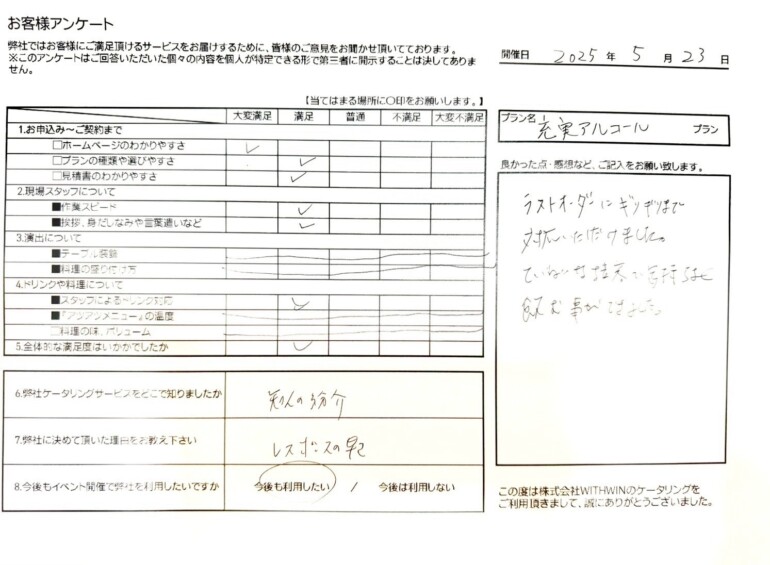 お客様アンケート
弊社ではお客様にご満足頂けるサービスをお届けするために、皆様のご意見をお聞かせ頂いております。
※このアンケートはご回答いただいた個々の内容を個人が特定できる形で第三者に開示することは決してありま
せん。
開催日 2025 年 5 月 23 日
【当てはまる場所に〇印をお願いします。】
大変満足 満足 普通 不満足 大変不満足
1.お申込み～ご契約まで
□ホームページのわかりやすさ ✓
□プランの種類や選びやすさ ✓
□見積書のわかりやすさ ✓
2.現場スタッフについて
■作業スピード ✓
■挨拶、身だしなみや言葉遣いなど ✓
3.演出について
■テーブル装飾
■料理の盛り付け方
4.ドリンクや料理について
■スタッフによるドリンク対応 ✓
■『アツアツメニュー』の温度
□料理の味、ボリューム
5.全体的な満足度はいかがでしたか ✓
6.弊社ケータリングサービスをどこで知りましたか 知人の紹介
7.弊社に決めて頂いた理由をお教え下さい レスポンスの早さ
8.今後もイベント開催で弊社を利用したいですか 今後も利用したい / 今後は利用しない
プラン名 充実アルコール プラン
良かった点・感想など、ご記入をお願い致します。
ラストオーダーにギリギリまで
対応いただけました。
ていねいな接客で気持ちよく
飲む事ができました
この度は株式会社WITHWINのケータリングを
ご利用頂きまして、誠にありがとうございました。